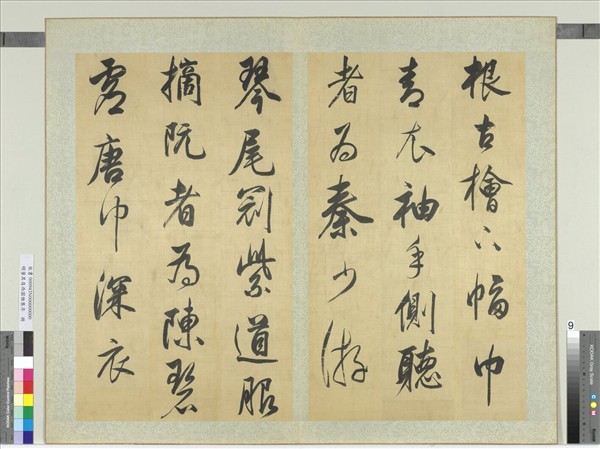 根古檜下幅巾
青衣袖手側聽
者為秦少游
琴尾冠紫道服
摘阮者為陳碧
虛唐巾深衣
9